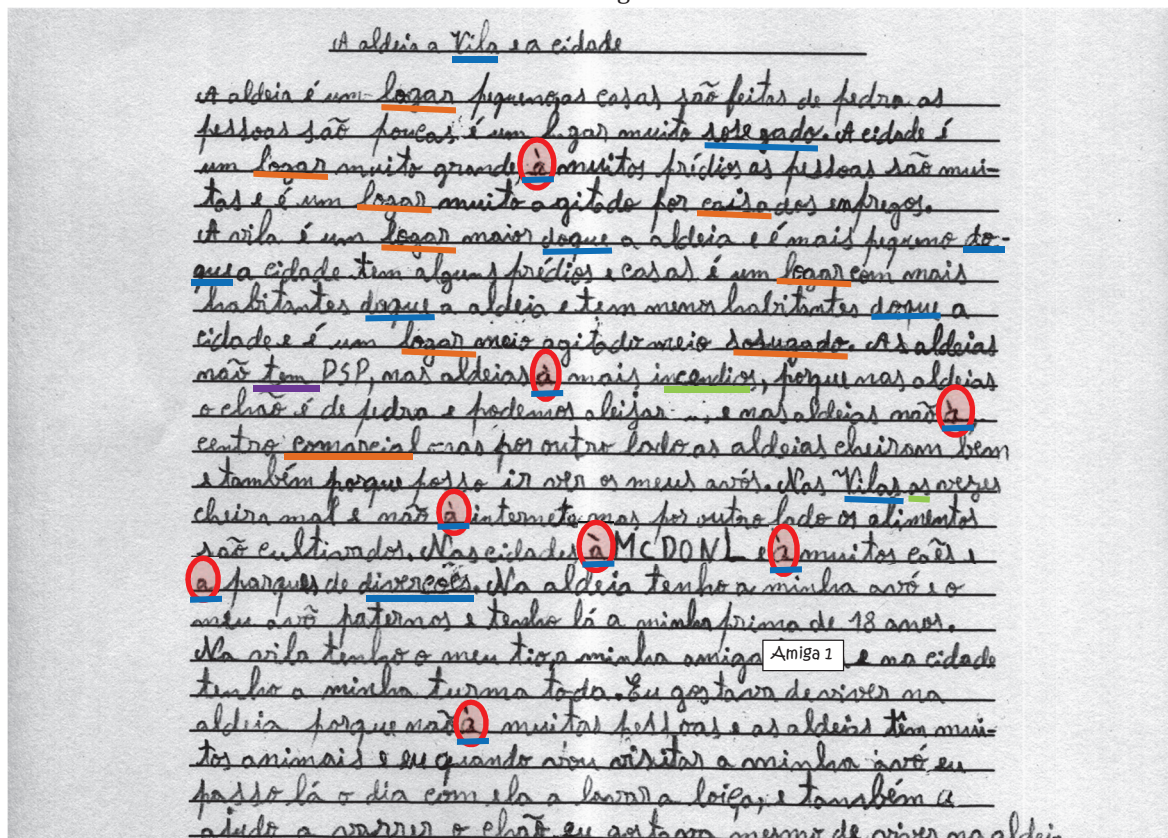 A aldeia a Vila e a cidade
A aldeia é um logar pequeno, as casas são feitas de pedra as
pessoas são poucas é um lugar muito sosegado. A cidade é
um logar muito grande, à muitos prídios as pessoas são mui-
tas e é um logar muito agitado por caisa dos enpregos.
A vila é um logar maior doque a aldeia e é mais pequeno do-
que a cidade tem alguns prédios e casas é um logar com mais
habitantes doque a aldeia e tem menos habitantes doque a
cidade e é um logar meio agitado meio sosugado. As aldeias
não tem PSP, nas aldeias à mais incendios, porque nas aldeias
o chão é de pedra e podemos aleijar... e nas aldeias não à
centro comarcial mas por outro lado as aldeias cheiram bem
e também porque posso ir ver os meus avós. Nas Vilas as vezes
cheira mal e não à internete mas por outro lado os alimentos
são cultivados. Nas cidades à McDONL e à muitos cães e
a parques de divercoês. Na aldeia tenho a minha avó e o
meu avô paternos e tenho lá a minha prima de 18 anos.
Na vila tenho o meu tio, a minha amiga Amiga 1 e na cidade
tenho a minha turma toda. Eu gostava de viver na
aldeia porque não à muitas pessoas e as aldeias têm mui-
tos animais e eu quando vou visitar a minha avó eu
passo lá o dia com ela a lavar a loiça, e tansbém a
ajudo a varrer o chão eu gostava mesmo de viver na aldei